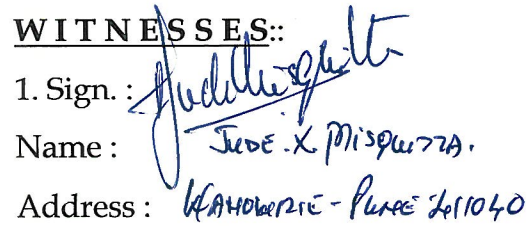 WITNESSES::
1. Sign. : Jude Misquitta
Name : JUDE . X MISQUITTA.
Address : WANOWRIE - PUNE 411040